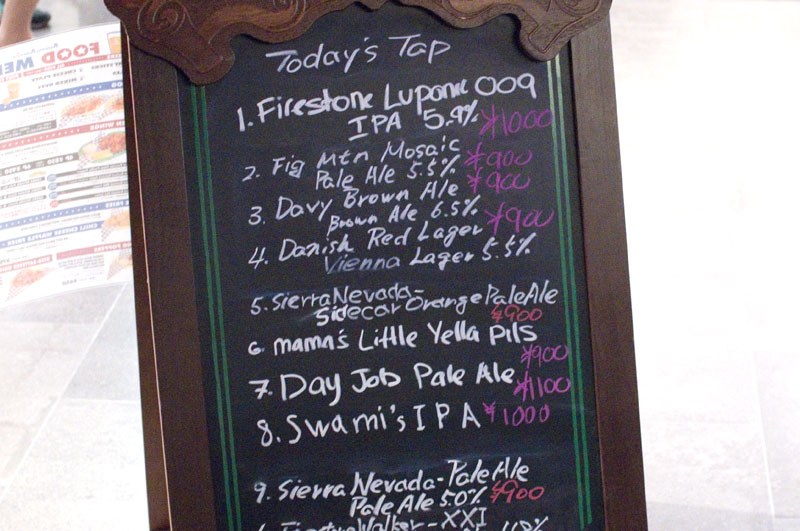 FOOD MEN
Today's Tap
1. Firestone Luponic 009
IPA 5.9% ¥1000
2. Fig Mtn Mosaic ¥900
Pale Ale 5.5%
3. Davy Brown Ale ¥900
Brown Ale 6.5%
4. Danish Red Lager ¥900
Vienna Lager 5.5%
5. Sierra Nevada-
Sidecar Orange Pale Ale
¥900
6. mama's Little Yella Pils
¥900
7. Day Job Pale Ale ¥1100
8. Swami's IPA ¥1000
9. Sierra Nevada-Pale Ale
Pale Ale 5.0% ¥900
Walker-XXI